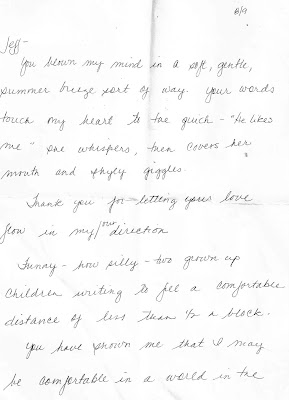 8/9
Jeff-
You blown my mind in a soft, gentle,
summer breeze sort of way. Your words
touch my heart to the quick - "He likes
me" she whispers, then covers her
mouth and shyly giggles.
Thank you for letting your love
flow in my/our direction
Funny - how silly - two grown up
children writing to feel a comfortable
distance of less than 1/2 a block.
You have shown me that I may
be comfortable in a world in the